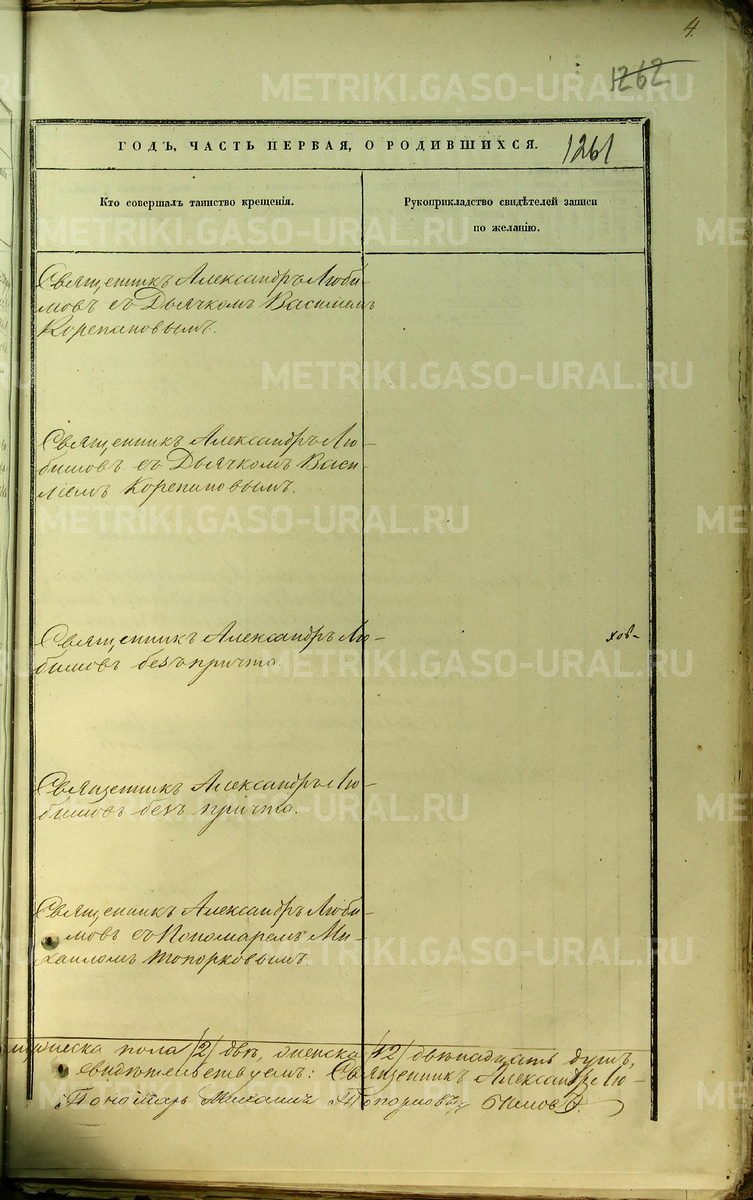 4.
1262
ГОДЪ, ЧАСТЬ ПЕРВАЯ, О РОДИВШИХСЯ.
1261
Кто совершалъ таинство крещенія.
Рукоприкладство свидѣтелей записи
по желанію.
Священникъ Александръ Люби-
мовъ съ Дьячкомъ Василіемъ
Корепановымъ.
Священникъ Александръ Лю-
бимовъ съ Дьячкомъ Васи-
ліемъ Корепановымъ.
Священникъ Александръ Лю-
бимовъ безъ причта.
Священникъ Александръ Лю-
бимовъ безъ причта.
Священникъ Александръ Люби-
мовъ съ Пономаремъ Ми-
хаиломъ Топорковымъ.
пола /2/ двѣ, /12/ двѣнадцать душъ,
свидѣтельствуемъ: Священникъ Александръ Лю-
Пономарь Михаилъ Топорковъ бимовъ.
METRIKI.GASO-URAL.RU